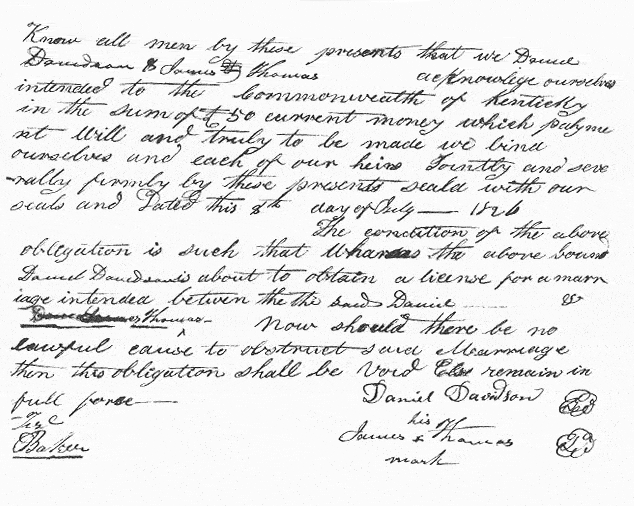 Know all men by these presents that we Daniel
Davidson & James Thomas acknowlige ourselves
intended to the Commonwealth of Kentickly
in the sum of £ 50 current money which payme
nt Will and truly to be made we bind
ourselves and each of our heirs Jointly and seve
rally firmly by these presents seald with our
seals and Dated this 8th day of July 1826
The condition of the above
obligation is such that Whareas the above bound
Daniel Davidson is about to obtain a license for a marr
iage intended betwen the the said Daniel &
James Thomas Now should there be no
lawful cause to obstruct said Mearriage
then this obligation shall be void Else remain in
full force
Daniel Davidson
his
James + Thomas
mark
Baker